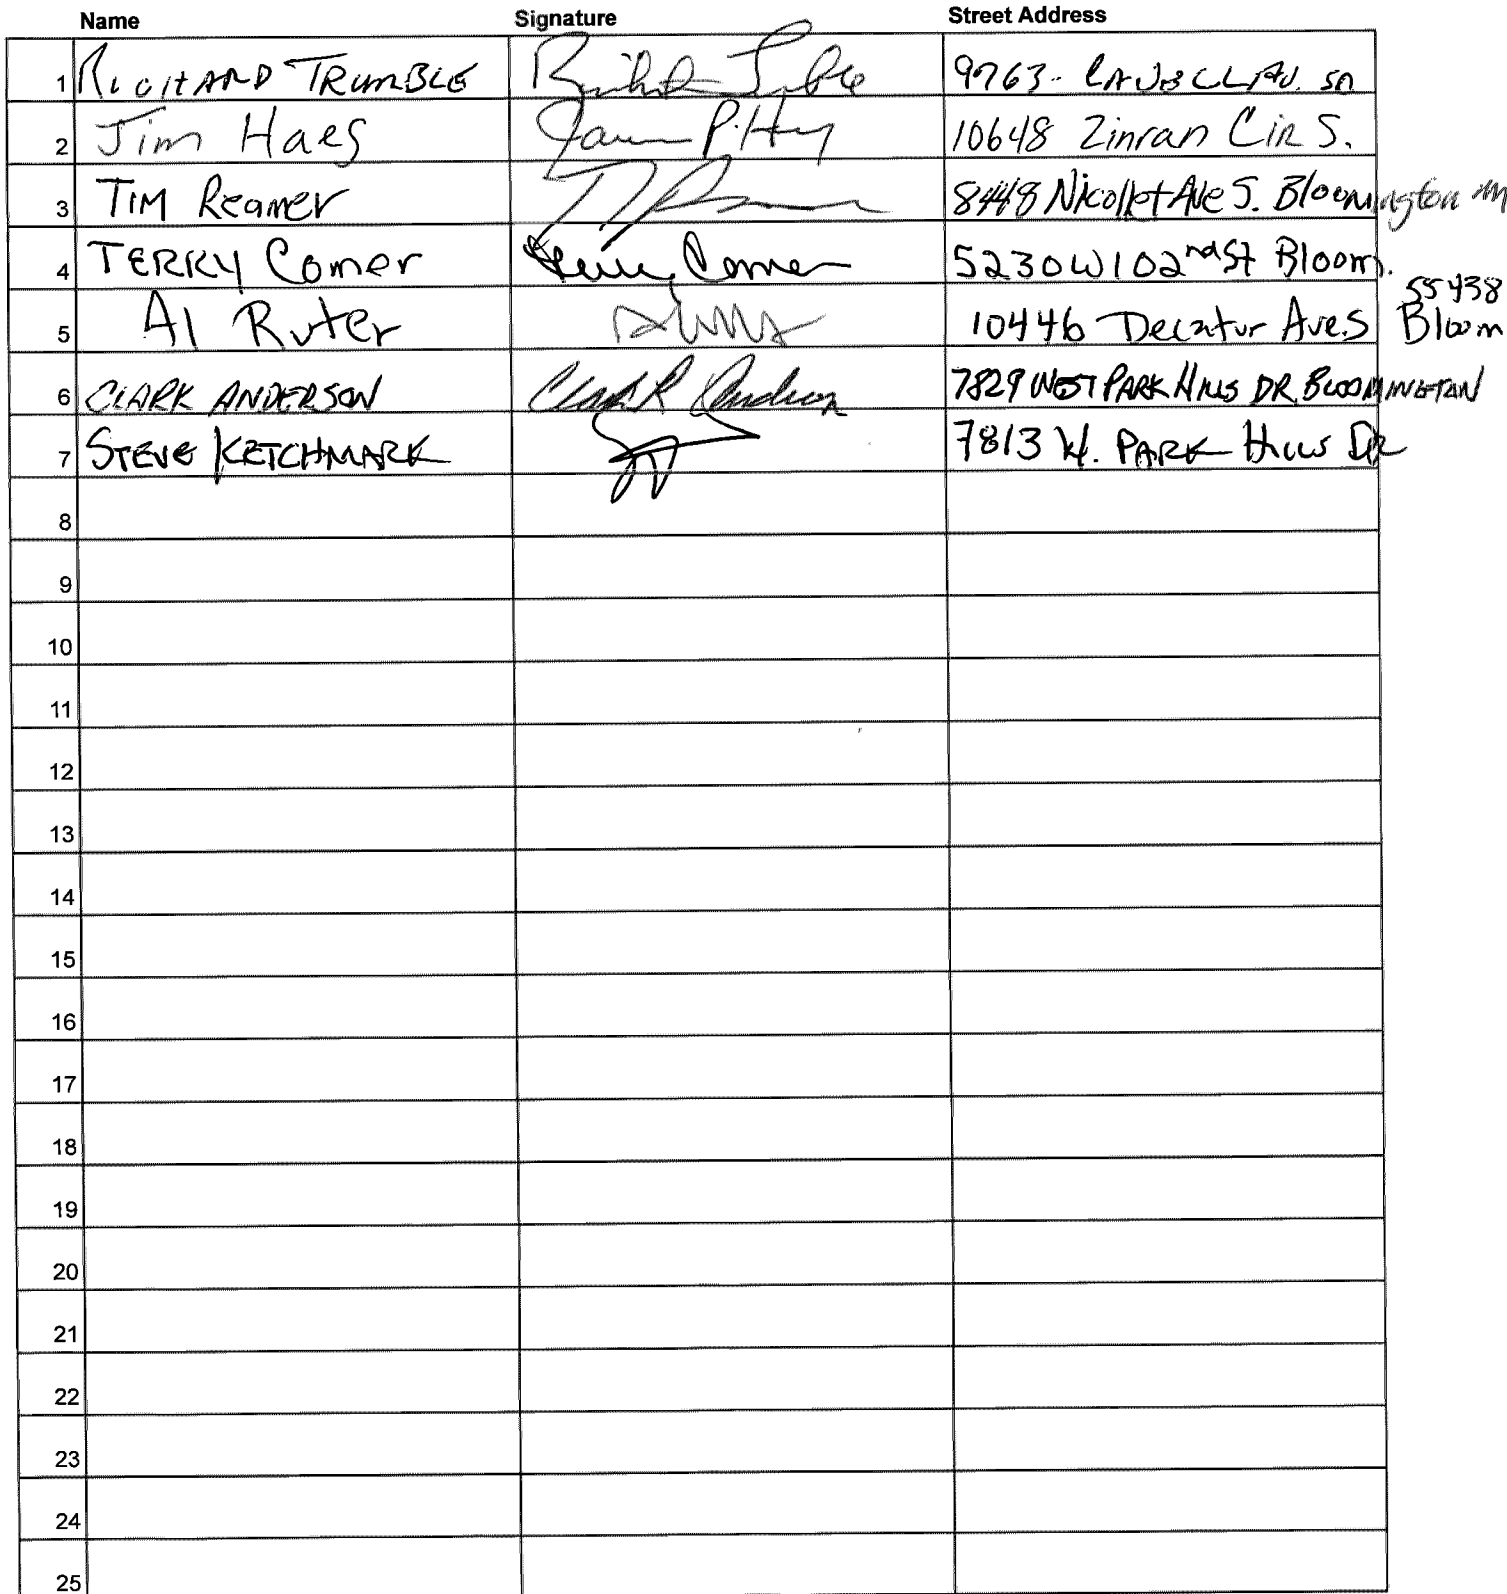 Name Signature Street Address
1 RICHARD TRUMBLE 9763
2 Jim Haes James P. 10648 Zinran Cir S.
3 TIM Reamer 8448 Nicollet Ave S. Bloomington MN
4 TERRY Comer Terry Comer 5230 W 102nd St Bloom.
55438
5 Al Ruter 10446 Decatur Ave S Bloom
6 CLARK ANDERSON Clark Anderson 7829 WEST PARK HILLS DR. BLOOMINGTON
7 STEVE KETCHMARK 7813 W. PARK HILLS DR
8
9
10
11
12
13
14
15
16
17
18
19
20
21
22
23
24
25